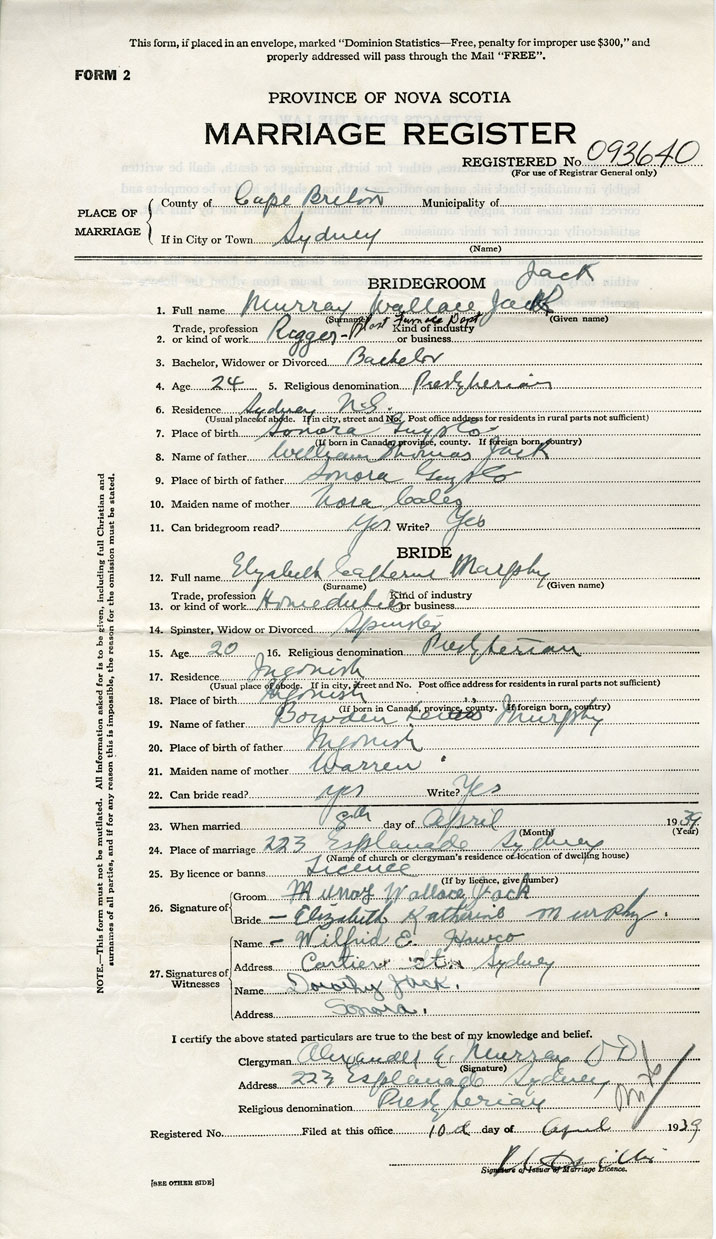 This form, if placed in an envelope, marked "Dominion Statistics—Free, penalty for improper use $300," and
properly addressed will pass through the Mail "FREE".
FORM 2
PROVINCE OF NOVA SCOTIA
MARRIAGE REGISTER
REGISTERED No. 093640
(For use of Registrar General only)
PLACE OF MARRIAGE
County of Cape Breton Municipality of
If in City or Town Sydney
(Name)
Jack
BRIDEGROOM
1. Full name Murray Wallace Jack
(Surname) (Given name)
Trade, profession Kind of industry
2. or kind of work Rigger - Blast Furnace Dept or business
3. Bachelor, Widower or Divorced Bachelor
4. Age 24 5. Religious denomination Presbyterian
6. Residence Sydney N.S.
(Usual place of abode. If in city, street and No. Post office address for residents in rural parts not sufficient)
7. Place of birth Sonora Guys Co
(If born in Canada, province, county. If foreign born, country)
8. Name of father William Thomas Jack
9. Place of birth of father Sonora Guys Co
10. Maiden name of mother Nora
11. Can bridegroom read? Yes Write? Yes
BRIDE
12. Full name Elyzabeth Catherine Murphy
(Surname) (Given name)
Trade, profession Kind of industry
13. or kind of work Homeduties or business
14. Spinster, Widow or Divorced Spinster
15. Age 20 16. Religious denomination Presbyterian
17. Residence Ingonish
(Usual place of abode. If in city, street and No. Post office address for residents in rural parts not sufficient)
18. Place of birth Ingonish
(If born in Canada, province, county. If foreign born, country)
19. Name of father Bowden Murphy
20. Place of birth of father Ingonish
21. Maiden name of mother Warren
22. Can bride read? yes Write? Yes
23. When married 8th day of April 1939
(Month) (Year)
24. Place of marriage 223 Esplanade Sydney
(Name of church or clergyman's residence or location of dwelling house)
25. By licence or banns Licence
(If by licence, give number)
26. Signature of
Groom Murray Wallace Jack
Bride — Elizabeth Katherine Murphy.
27. Signatures of Witnesses
Name — Wilfrid E. Howco
Address Cartier St. Sydney
Name Dorothy Jack.
Address Sonora.
I certify the above stated particulars are true to the best of my knowledge and belief.
Clergyman Alexander A. Murray D D
(Signature)
Address 223 Esplanade Sydney
Religious denomination Presbyterian
Registered No. Filed at this office 10th day of April 1939
Signature of Issuer of Marriage Licence.
[SEE OTHER SIDE]
NOTE.—This form must not be mutilated. All information asked for is to be given, including full Christian and
surnames of all parties, and if for any reason this is impossible, the reason for the omission must be stated.